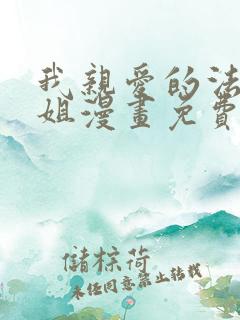 我親愛的法
姐漫畫免費
儲棕荷
未经同意禁止转载